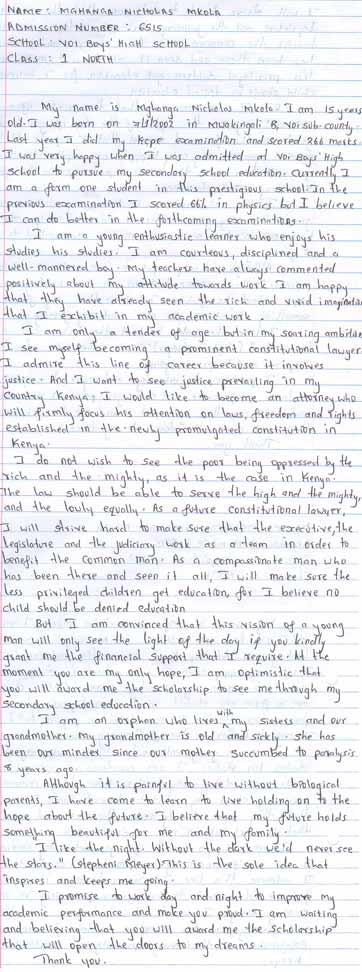 NAME: MGHANGA NICHOLAS MKOLA
ADMISSION NUMBER: 6515
SCHOOL: VOI BOYS' HIGH SCHOOL
CLASS: 1 NORTH
My name is Mghanga Nicholas Mkola. I am 15 years
old. I was born on 7/3/2002 in Mwakingali B, Voi sub-county.
Last year I did my Kcpe examination and scored 266 marks.
I was very happy when I was admitted at Voi Boys' High
School to pursue my secondary school education. Currently I
am a form one student in this prestigious school. In the
previous examination I scored 66% in physics but I believe
I can do better in the forthcoming examinations.
I am a young enthusiastic learner who enjoys his
studies his studies. I am courteous, disciplined and a
well-mannered boy. My teachers have always commented
positively about my attitude towards work I am happy
that they have already seen the rich and vivid imagination
that I exhibit in my academic work.
I am only a tender of age but in my soaring ambition
I see myself becoming a prominent constitutional lawyer
I admire this line of career because it involves
justice. And I want to see justice prevailing in my
Country Kenya. I would like to become an attorney who
will firmly focus his attention on laws, freedom and rights
established in the newly promulgated constitution in
Kenya.
I do not wish to see the poor being oppressed by the
rich and the mighty, as it is the case in Kenya.
The law should be able to serve the high and the mighty,
and the lowly equally. As a future constitutional lawyer,
I will strive hard to make sure that the executive, the
legislature and the judiciary work as a team in order to
benefit the common man. As a compassionate man who
has been there and seen it all, I will make sure the
less privileged children get education, for I believe no
child should be denied education
But I am convinced that this vision of a young
man will only see the light of the day if you kindly
grant me the financial support that I require. At the
moment you are my only hope, I am optimistic that
you will award me the scholarship to see me through my
secondary school education.
I am an orphan who lives with my sisters and our
grandmother. My grandmother is old and sickly. She has
been our minder since our mother succumbed to paralysis
8 years ago.
Although it is painful to live without biological
parents, I have come to learn to live holding on to the
hope about the future. I believe that my future holds
something beautiful for me and my family.
I like the night. Without the dark we'd never see
the stars." (Stepheni Meyer) This is the sole idea that
inspires and keeps me going.
I promise to work day and night to improve my
academic performance and make you proud. I am waiting
and believing that you will award me the scholarship
that will open the doors to my dreams.
Thank you.